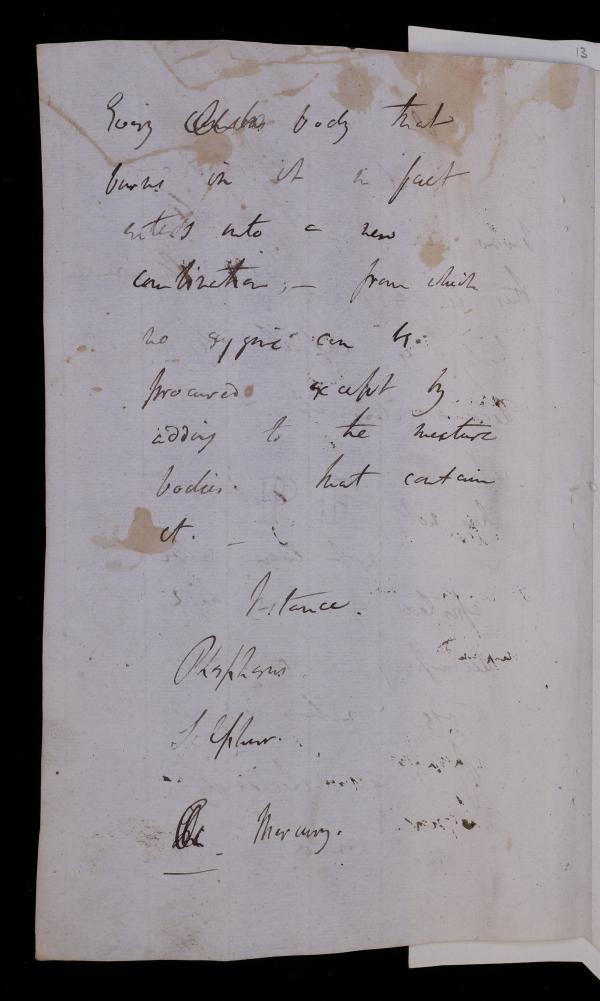 13
Every body that
burns in it in fact
enters into a new
combination; – from which
no oxygene can be
procured except by
adding to the mixture
bodies that contain
it. –
Instance.
Phosphorus
Sulphur.
Mercury.